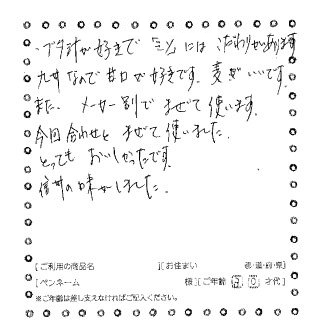 みそ汁が好きで「ミソ」にはこだわりがあります
九州なので甘口が好きです。麦がいいです。
また、メーカー別でまぜて使います。
今回合わせとまぜて使いました。
とっても おいしかったです。
信州の味がしました。
[ご利用の商品名 ][お住まい 都・道・府・県]
[ペンネーム 様][ご年齢 50 才代]
※ご年齢は差し支えなければご記入ください。